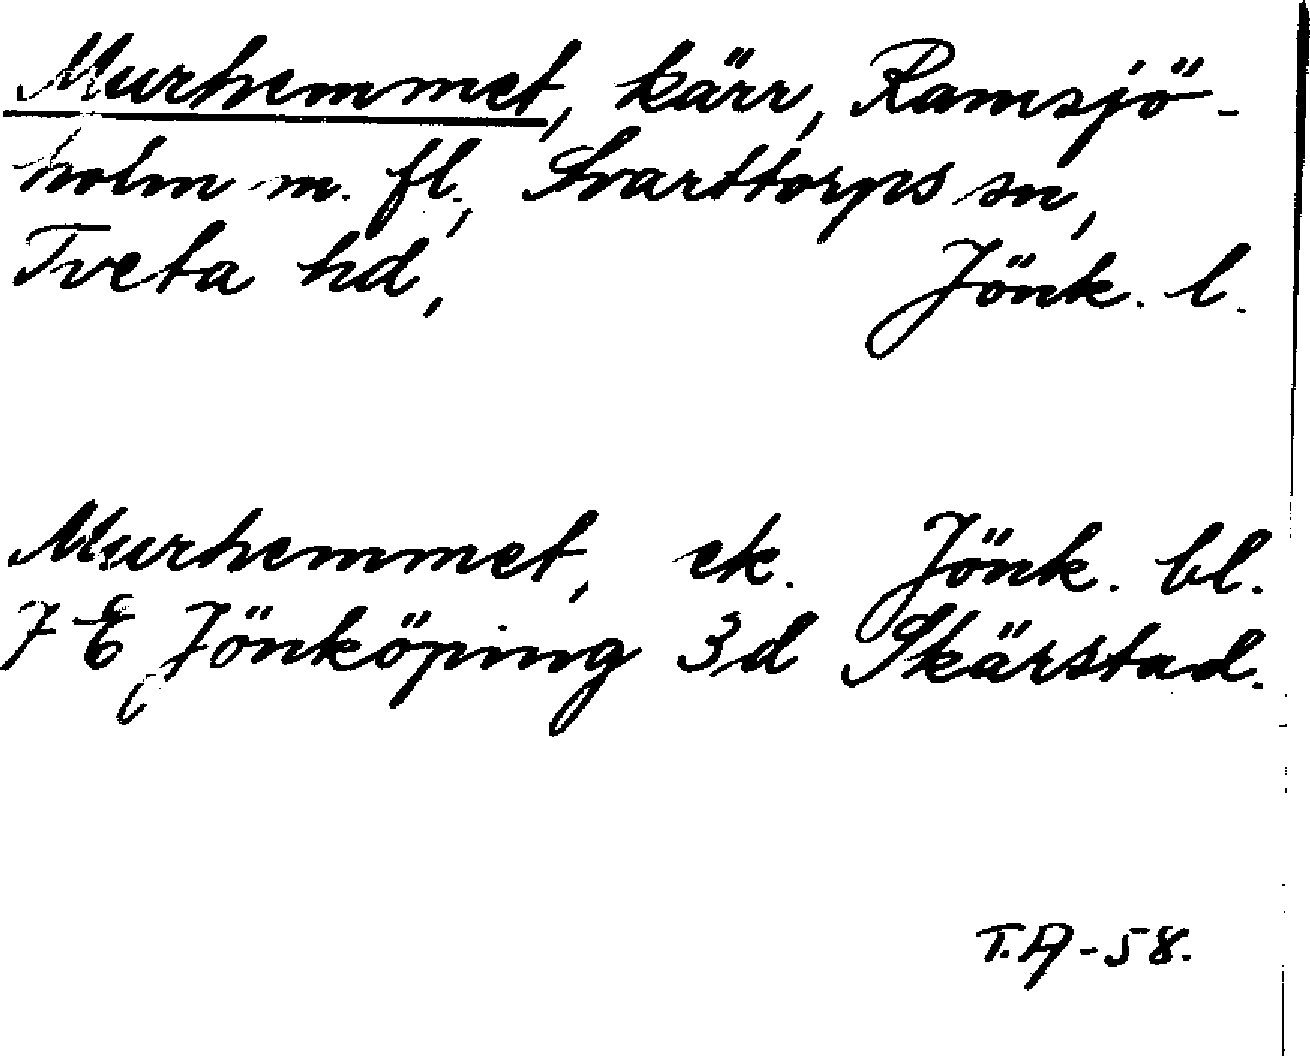 Murhemmet, kärr, Ramsjö-
holm m. fl., Svarttorps sn,
Tveta hd, Jönk. l.
Murhemmet, ek. Jönk. bl.
7 E Jönköping 3d Skärstad.
T.A-58.